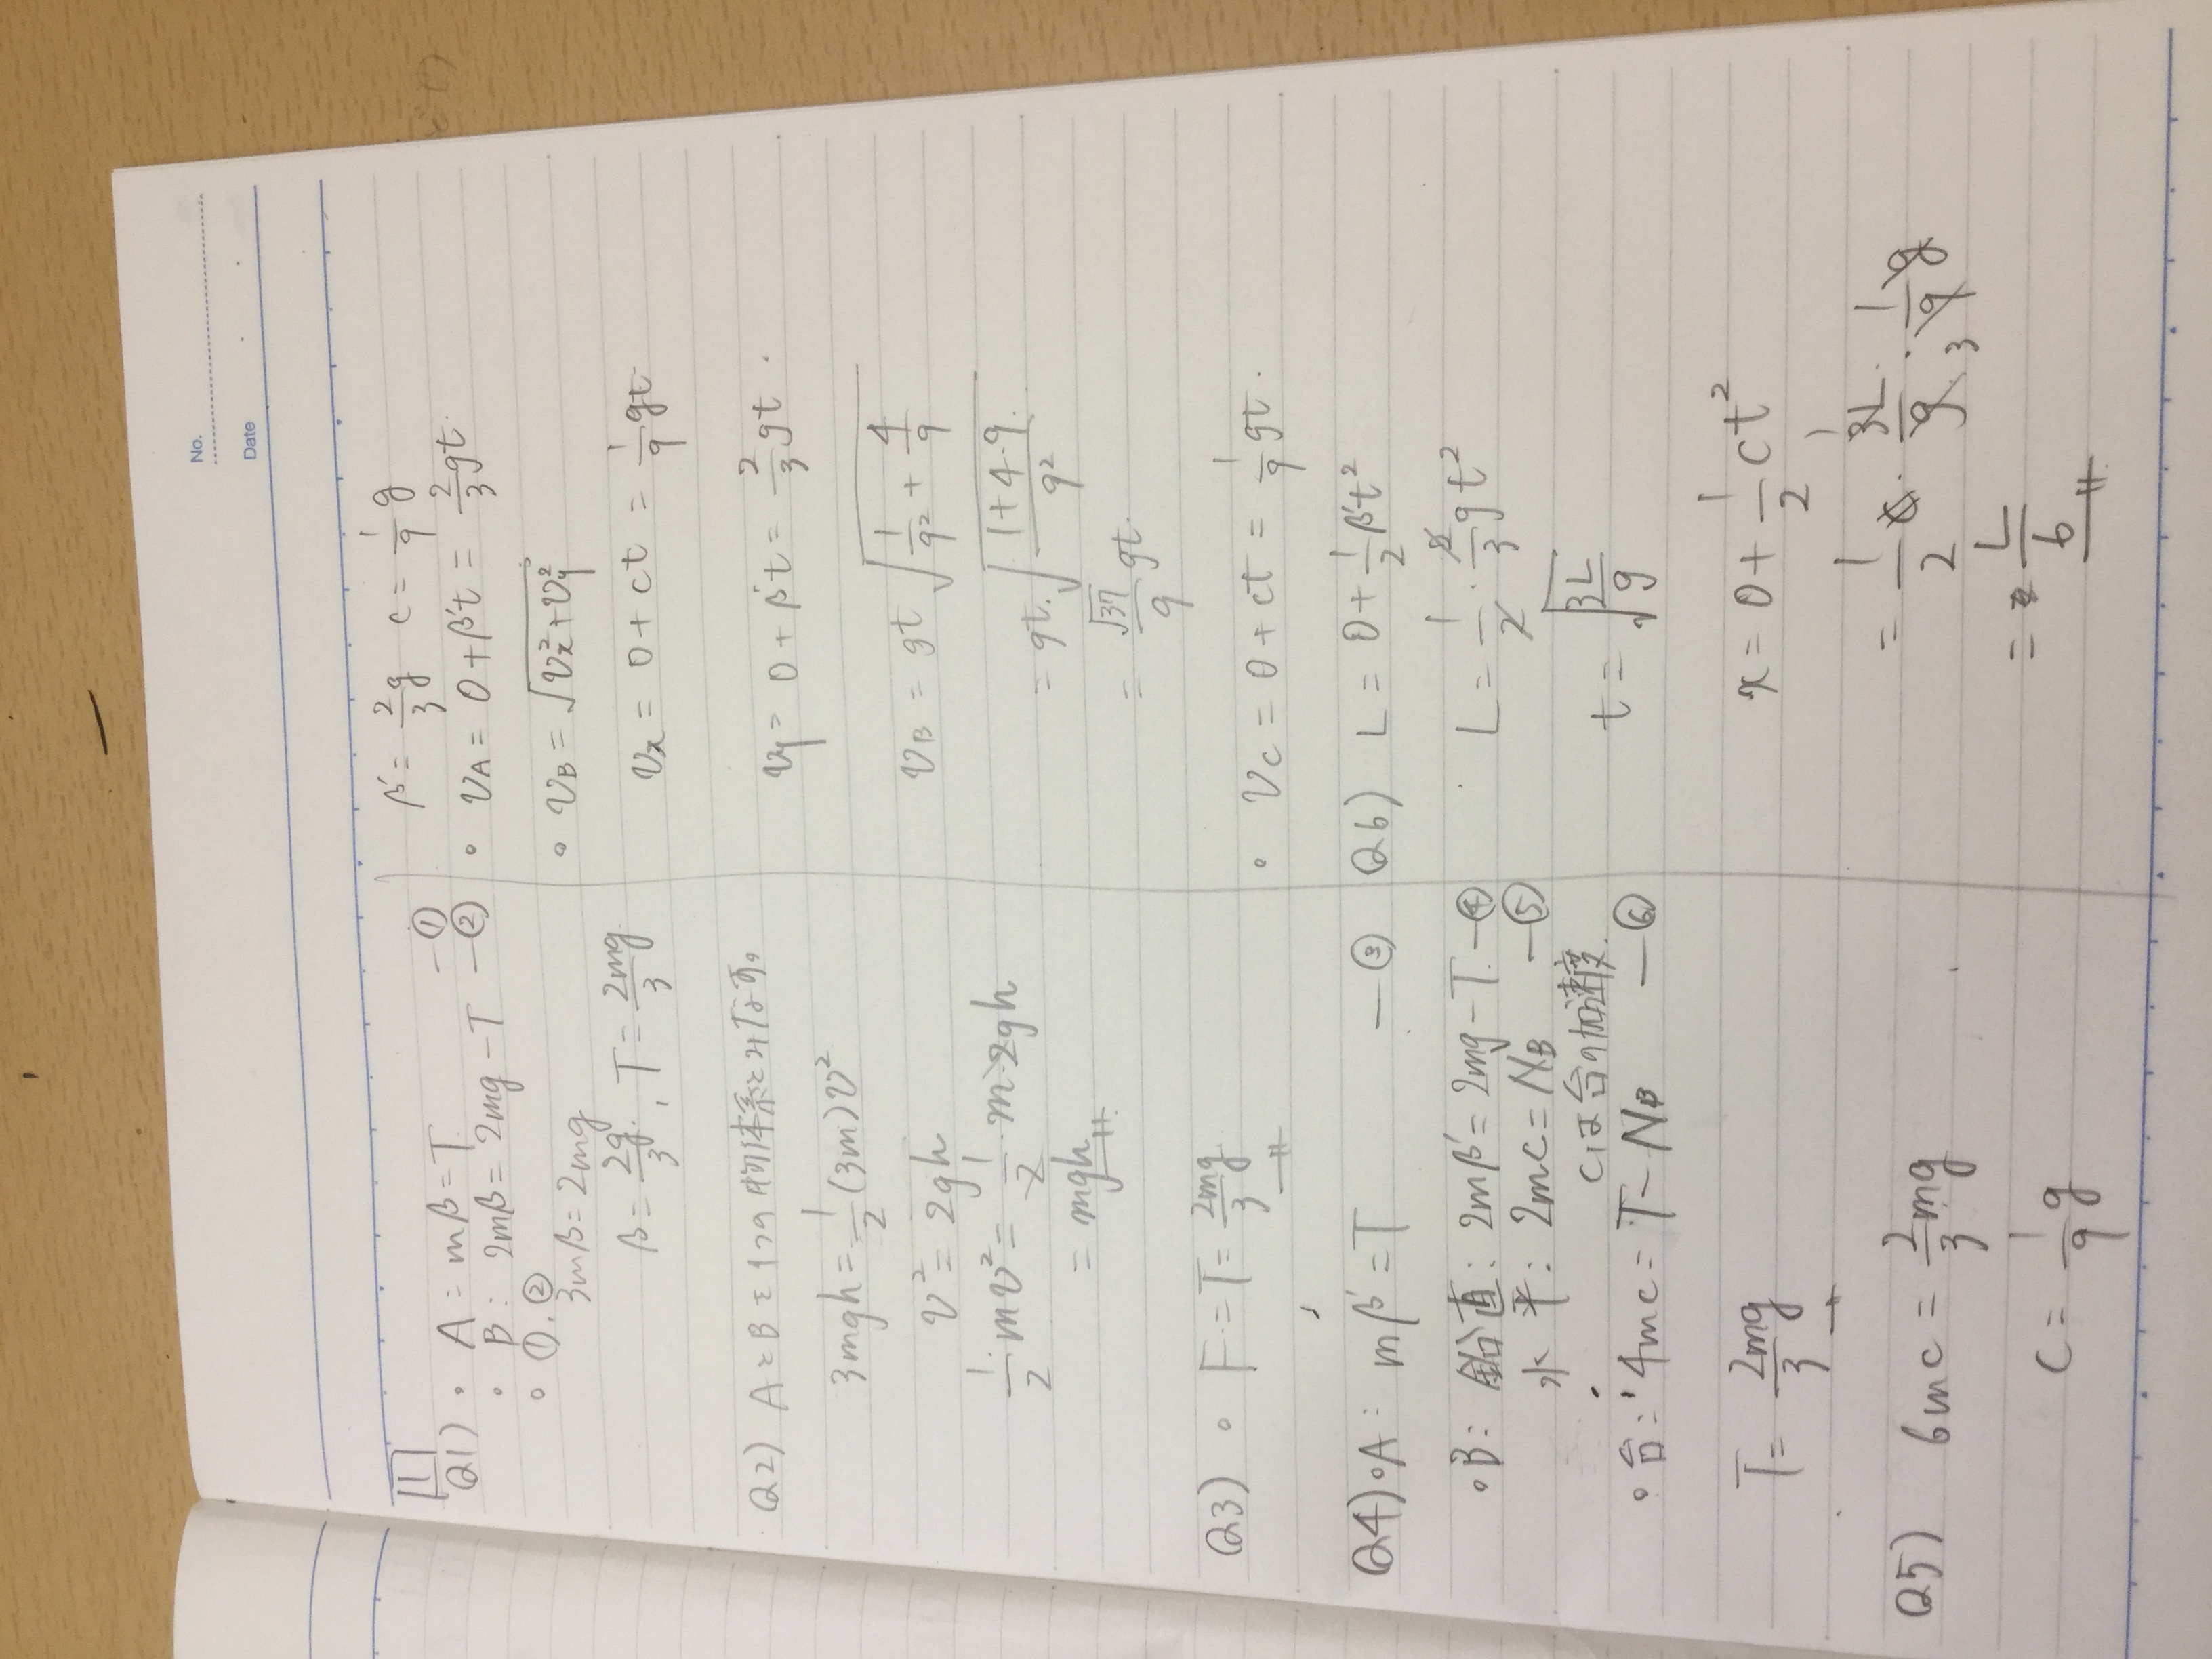 No.
Date
1
Q1) ∘ A = mβ = T —①
∘ B: 2mβ = 2mg - T —②
∘ ①.②
3mβ = 2mg
β = 2g/3, T = 2mg/3
Q2) AとBを1つの物体系とみなす。
3mgh = 1/2 (3m)v²
v² = 2gh
1/2 mv² = 1/2 · m · 2gh
= mgh
Q3) ∘ F = T = 2mg/3
Q4) ∘A: mβ' = T —③
∘B: 鉛直: 2mβ' = 2mg - T —④
水平: 2mc = N_B —⑤
cは台の加速度
∘台: 4mc = T - N_B —⑥
T = 2mg/3
Q5) 6mc = 2/3 mg
c = 1/9 g
β' = 2/3 g c = 1/9 g
∘ v_A = 0 + β't = 2/3 gt
∘ v_B = √(v_x² + v_y²)
v_x = 0 + ct = 1/9 gt
v_y = 0 + β't = 2/3 gt
v_B = gt √(1/9² + 4/9)
= gt · √((1+4·9)/9²)
= √37/9 gt
∘ v_C = 0 + ct = 1/9 gt
Q6) L = 0 + 1/2 β't²
L = 1/2 · 2/3 gt²
t = √(3L/g)
x = 0 + 1/2 ct²
= 1/2 · 3L/g · 1/9 g
= L/6